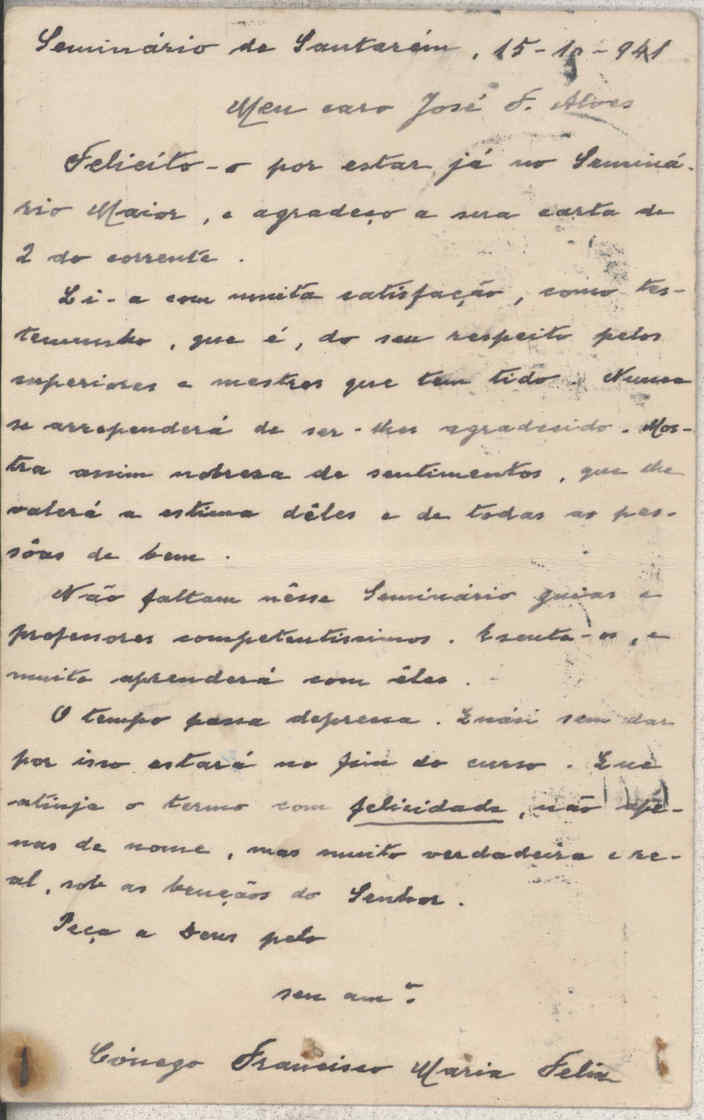 Seminário de Santarém, 15-10-941
Meu caro José F. Alves
Felicito-o por estar já no Seminá-
rio Maior, e agradeço a sua carta de
2 do corrente.
Li-a com muita satisfação, como tes-
temunho, que é, do seu respeito pelos
superiores e mestres que tem tido. Nunca
se arrependerá de ser-lhes agradecido. Mos-
tra assim nobreza de sentimentos, que lhe
valerá a estima dêles e de todas as pes-
sôas de bem.
Não faltam nêsse Seminário guias e
professores competentissimos. Escute-os, e
muito aprenderá com êles.
O tempo passa depressa. Quási sem dar
por isso estará no fim do curso. Que
atinja o termo com felicidade, não ape-
nas de nome, mas muito verdadeira e re-
al, sob as bençãos do Senhor.
Peça a Deus pelo
seu am.º
Cónego Francisco Maria Felix